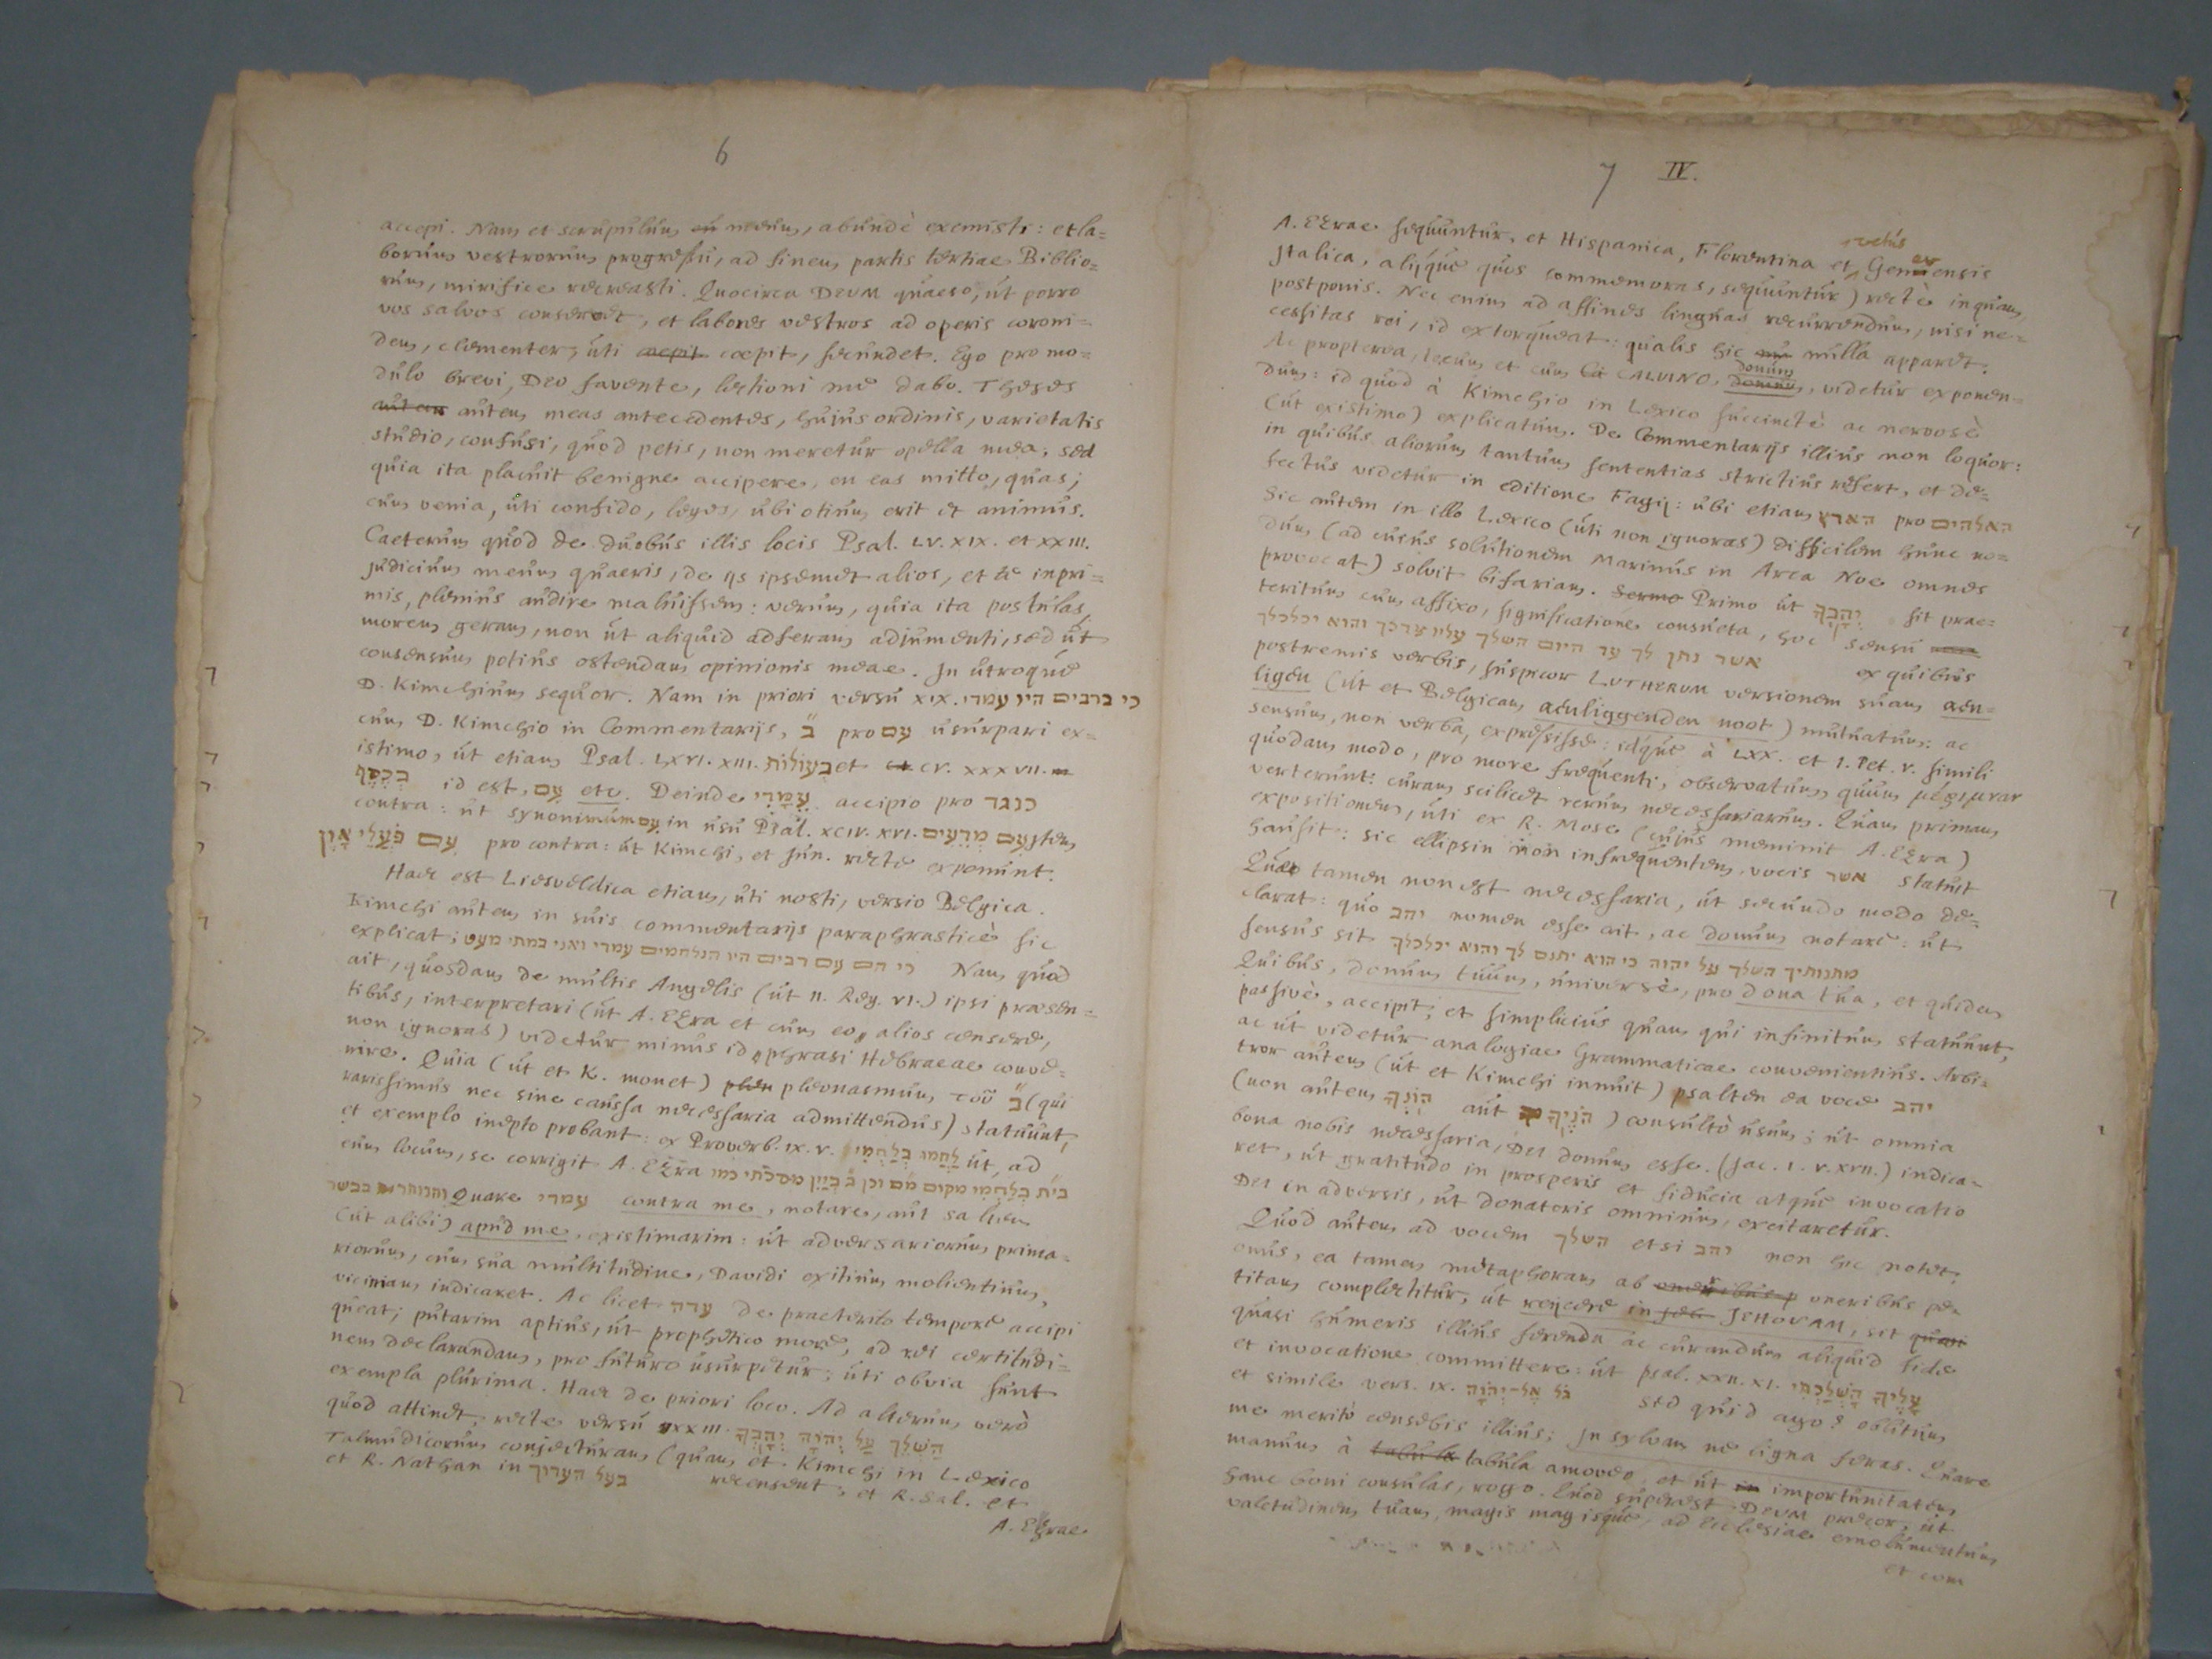 6
accepi. Nam et scrupulum eū meum, abundè exemisti: et la=
borum vestrorum progressu, ad finem partis tertiae Biblio=
rum, mirificè recreasti. Quocirca DEUM quaeso, út porro
vos salvos conservet, et labores vestros ad operis coroni=
dem, clementer, úti caepit coepit, secundet. Ego pro mo=
dúlo brevi, Deo favente, lectioni me dabo. Theses
autem autem meas antecedentes, hujus ordinis, varietatis
stúdio, confúsi, quod petis, non meretúr opella mea, sed
quia ita placuit benigne accipere, en eas mitto, quas,
cum venia, úti confido, leges, úbi otium erit et animús.
Caeterúm quod de dúobús illis locis Psal. LV. XIX. et XXIII.
júdicium meum quaeris, de ijs ipsemet alios, et te inpri=
mis, plenius audire maluissem: verum, quia ita postúlas,
morem geram, non út aliquid adferam adjumenti, sed út
consensum potius ostendam opinionis meae. In útroque
D. Kimchium sequor. Nam in priori versú XIX. כי ברבים היו עמדי
cum D. Kimchio in Commentarijs, בּ pro עם usúrpari ex=
istimo, út etiam Psal. LXVI. XIII. בעולות et CV. XXXVII.
בְּכֶסֶף id est, עם etc. Deinde עִמָּדִי accipio pro כנגד
contra: ut synonimúm עם in usu Psal. XCIV. XVI. עִם מְרֵעִים Item
עִם פֹּעֲלֵי אָוֶן pro contra: út Kimchi, et Jun. rectè exponunt.
Haec est Liesveldica etiam, úti nosti, versio Belgica.
Kimchi autem in suis commentarijs paraphrasticè sic
explicat; כי הם עם רבים היו הנלחמים עמדי ואני במתי מעט Nam quod
ait, quosdam de multis Angelis (út II. Reg. VI.) ipsi praesen=
tibus, interpretari (út A. Ezra et cum eo, alios censere,
non ignoras) videtur minus id phrasi Hebraeae conve=
nire. Quia (út et K. monet) plen pleonasmum τοῦ בּ (qui
rarissimus nec sine caussa necessaria admittendus) statuunt,
et exemplo inepto probant: ex Proverb. IX. V. לַחֲמוּ בְלַחֲמִי út, ad
eum locum, se corrigit A. Ezra בי״ת בְּלַחֲמִי מקום מ״ם וכן ב׳ בְּיַיִן מסכתי כמו
והנותר בבשר Quare עמדי contra me, notare, aut saltem
(út alibi) apud me, existimarim: út adversariorum prima=
riorum, cum sua multitudine, Davidi exitium molientium,
viciniam indicaret. Ac licet פדה de praeterito tempore accipi
queat; putarim aptius, út prophetico more, ad rei certitúdi=
nem declarandam, pro futuro usúrpetur; úti obvia sunt
exempla plurima. Haec de priori loco. Ad alterum verò
quod attinet, rectè versú XXIII. הַשְׁלֵךְ עַל יְהוָה יְהָבְךָ
Talmúdicorum conjecturam (quam et Kimchi in Lexico
et R. Nathan in בעל הערוך recensent; et R. Sal. et
A. Ezrae
7 IV.
A. Ezrae sequuntur, et Hispanica, Florentina et vetús Genevensis
Italica, alijque quos commemoras, sequuntur) rectè inquam,
postponis. Nec enim ad affines linguas recurrendum, nisi ne=
cessitas rei, id extorqueat: qualis hic nu nulla apparet.
Ac propterea, tecum et cum CALVINO, donum dominus, videtur exponen=
dum: id quod à Kimchio in Lexico succinctè ac nervosè
(út existimo) explicatum. De Commentarijs illius non loquor:
in quibus aliorum tantum sententias strictius refert, et de=
fectus videtur in editione Fagij: úbi etiam הארץ pro האלהים
Sic autem in illo Lexico (úti non ignoras) difficilem hunc no=
dum (ad cujus solutionem Marinus in Arca Noe omnes
provocat) solvit bifariam. Sermo Primo út יְהָבְךָ sit prae=
teritum cum affixo, significatione consúeta, hoc sensu
אשר נתן לך עד היום השלך עליו צרכך והוא יכלכלך ex quibus
postremis verbis, suspicor LUTHERUM versionem suam aen=
ligen (út et Belgicam aenliggenden noot) mútuatum: ac
sensum, non verba, expressisse: idque à LXX. et I. Pet. V. simili
quodam modo, pro more frequenti, observatum, quum μέριμναν
verterunt: curam scilicet rerum necessariarum. Quam primam
expositionem, úti ex R. Mose (cujus meminit A. Ezra)
hausit: sic ellipsin non infrequentem, vocis אשר statuit
Quae tamen non est necessaria, út secundo modo de=
clarat: quo יהב nomen esse ait, ac donum notare: út
sensus sit מתנותיך השלך על יהוה כי הוא יתנם לך והוא יכלכלך
Quibus, donum tuum, universè, pro dona tua, et quidem
passivè, accipit; et simplicius quam qui infinitum statuunt,
ac út videtur analogiae Grammaticae convenientius. Arbi=
tror autem (út et Kimchi innuit) psalten ea voce יהב
(non autem הוֹנְךָ aut הֹנֶיךָ) consultò usum; út omnia
bona nobis necessaria, Dei donum esse. (Jac. I. v. XVII.) indica=
ret, út gratitudo in prosperis et fiducia atque invocatio
Dei in adversis, út donatoris omnium, excitaretur.
Quod autem ad vocem השלך etsi יהב non hic notet,
onus, ea tamen metaphoram ab oneribus p oneribus pe=
titam complectitur, út reijcere in JEHOVAM, sit quasi
quasi humeris illius ferendum ac curandum aliquid fide
et invocatione committere: út psal. XXII. XI. עָלֶיךָ הָשְׁלַכְתִּי
et simile vers. IX. גֹּל אֶל־יְהוָֹה Sed quid ago? oblitum
me meritò censebis illius; In sylvam ne ligna feras. Quare
manum à tabúla tabula amoveo, et út in importunitatem
hanc boni consulas, rogo. Quod superest, DEUM precor, út
valetudinem tuam, magis magisque, ad Ecclesiae emolumentum
et com